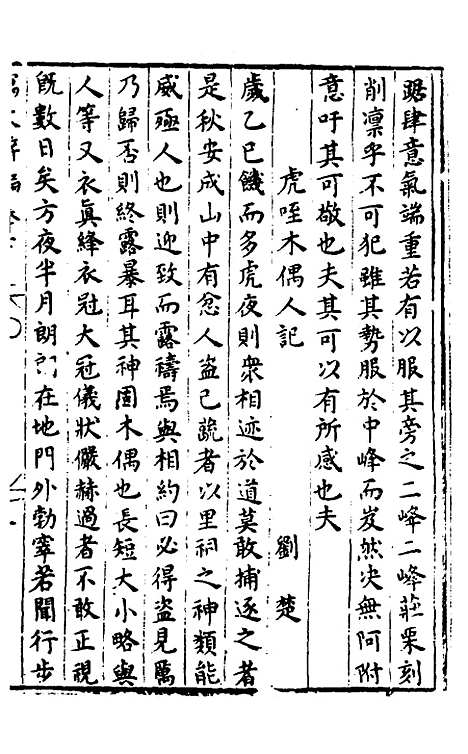 踞肆意氣端重若有以服其旁之二峰二峰莊栗刻
削凛乎不可犯雖其勢服於中峰而岌然决無阿附
意吁其可敬也夫其可以有所感也夫
虎咥木偶人記 劉楚
歲乙巳饑而多虎夜則衆相迹於道莫敢捕逐之者
是秋安成山中有忿人盗已蔬者以里祠之神類能
威殛人也則迎致而露禱焉與相約曰必得盗見厲
乃歸否則終露暴耳其神固木偶也長短大小略與
人等又衣眞絳衣冠大冠儀狀儼赫過者不敢正視
旣數日矣方夜半月朗朗在地門外勃窣若聞行步